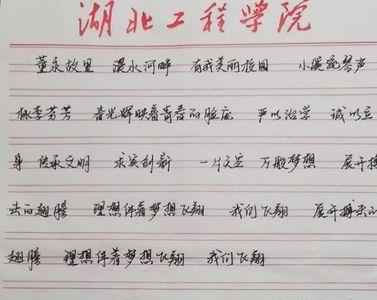 湖北工程学院
董永故里 澴水河畔 有我美丽校园 小溪琴声
桃李芬芳 春光辉映着青春的脸庞 严以治学 诚以立
身 传承文明 求实创新 一片天空 万般梦想 展开搏
击的翅膀 理想伴着梦想飞翔 我们飞翔 展开搏击的
翅膀 理想伴着梦想飞翔 我们飞翔